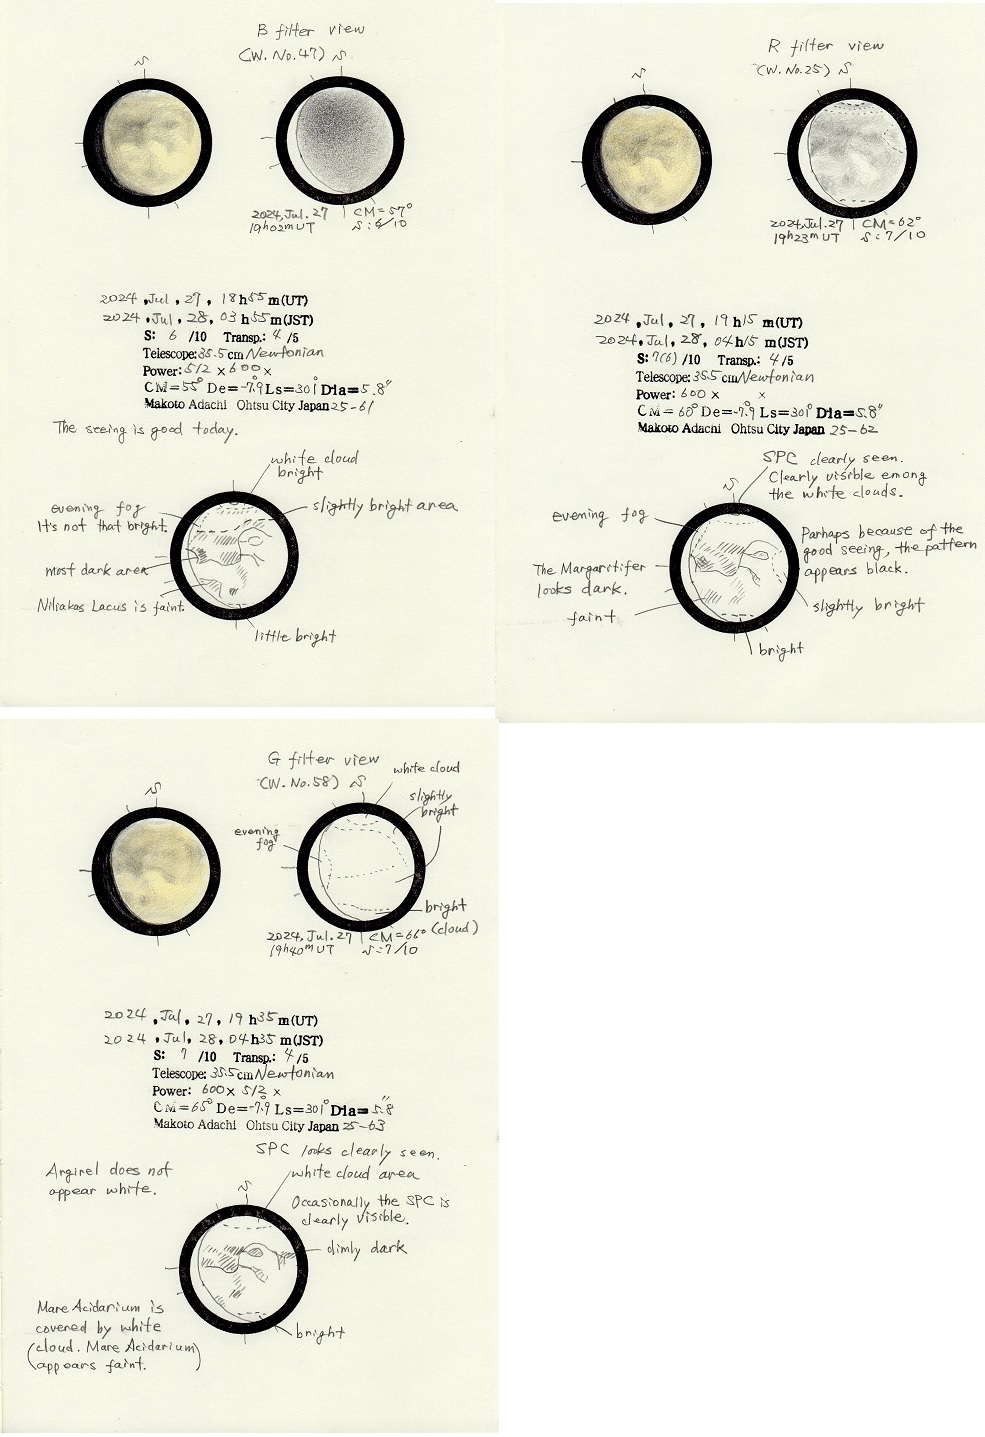 B filter view
(W. No. 47) S
S
2024, Jul. 27
19h02mUT
CM=57°
S: 6/10
2024, Jul, 27, 18h55m(UT)
2024, Jul, 28, 03h55m(JST)
S: 6 /10 Transp.: 4 /5
Telescope: 35.5cm Newtonian
Power: 512 × 600 ×
CM=55° De=-7.9 Ls=301° Dia=5.8"
Makoto Adachi Ohtsu City Japan 25-61
The seeing is good today.
white cloud
bright
slightly bright area
evening fog
It's not that bright.
most dark area
Niliakas Lacus is faint.
little bright
R filter view
(W. No. 25) S
S
2024, Jul. 27
19h23mUT
CM=62°
S: 7/10
2024, Jul, 27, 19h15 m(UT)
2024, Jul, 28, 04h15 m(JST)
S: 7(6) /10 Transp.: 4/5
Telescope: 35.5cm Newtonian
Power: 600 × ×
CM=60° De=-7.9 Ls=301° Dia=5.8"
Makoto Adachi Ohtsu City Japan 25-62
SPC clearly seen.
Clearly visible emong
the white clouds.
S
evening fog
Parhaps because of the
good seeing, the pattern
appears black.
The Margaritifer
looks dark.
slightly bright
faint
bright
G filter view
(W. No. 58) S
S
white cloud
slightly
bright
evening
fog
bright
(cloud)
2024, Jul. 27
19h40mUT
CM=66°
S: 7/10
2024, Jul, 27, 19h35m(UT)
2024, Jul, 28, 04h35m(JST)
S: 7 /10 Transp.: 4/5
Telescope: 35.5cm Newtonian
Power: 600× 512 ×
CM=65° De=-7.9 Ls=301° Dia=5.8"
Makoto Adachi Ohtsu City Japan 25-63
SPC looks clearly seen.
white cloud area
Argirel does not
appear white.
S
Occasionally the SPC is
clearly visible.
dimly dark
Mare Acidarium is
covered by white
(cloud. Mare Acidarium)
appears faint.
bright